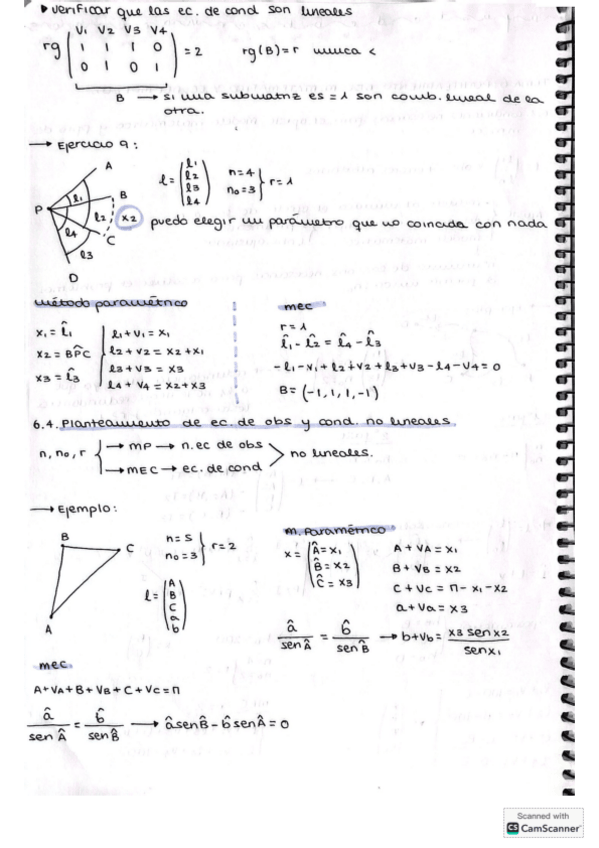 ▸ verificar que las ec. de cond son lineales
V1 V2 V3 V4
rg (1 1 1 0
0 1 0 1) = 2 rg(B) = r nunca <
B → si una submatriz es = 1 son comb. lineal de la otra.
→ Ejercicio 9:
A
B
C
D
P
l1
l2
l3
l4
x2
l = (l1
l2
l3
l4) n=4
n0=3 } r=1
puedo elegir un parámetro que no coincida con nada
método paramétrico
x1 = l̂1
x2 = BP̂C
x3 = l̂3
l1 + v1 = x1
l2 + v2 = x2 + x1
l3 + v3 = x3
l4 + v4 = x2 + x3
mec
r = 1
l̂1 - l̂2 = l̂4 - l̂3
- l1 - v1 + l2 + v2 + l3 + v3 - l4 - v4 = 0
B = (-1, 1, 1, -1)
6.4. Planteamiento de ec. de obs y cond. no lineales.
n, n0, r { → MP → n. ec de obs
→ MEC → ec. de cond > no lineales.
→ Ejemplo:
B
C
A
n = 5
n0 = 3 } r = 2
l = (A
B
C
a
b)
m. Paramétrico
x = (Â = x1
B̂ = x2
Ĉ = x3)
A + VA = x1
B + VB = x2
C + Vc = π - x1 - x2
a + Va = x3
â / sen Â = b̂ / sen B̂ → b + Vb = x3 sen x2 / sen x1
mec
A + VA + B + VB + C + Vc = π
â / sen Â = b̂ / sen B̂ → â sen B̂ - b̂ sen Â = 0
Scanned with
CS CamScanner